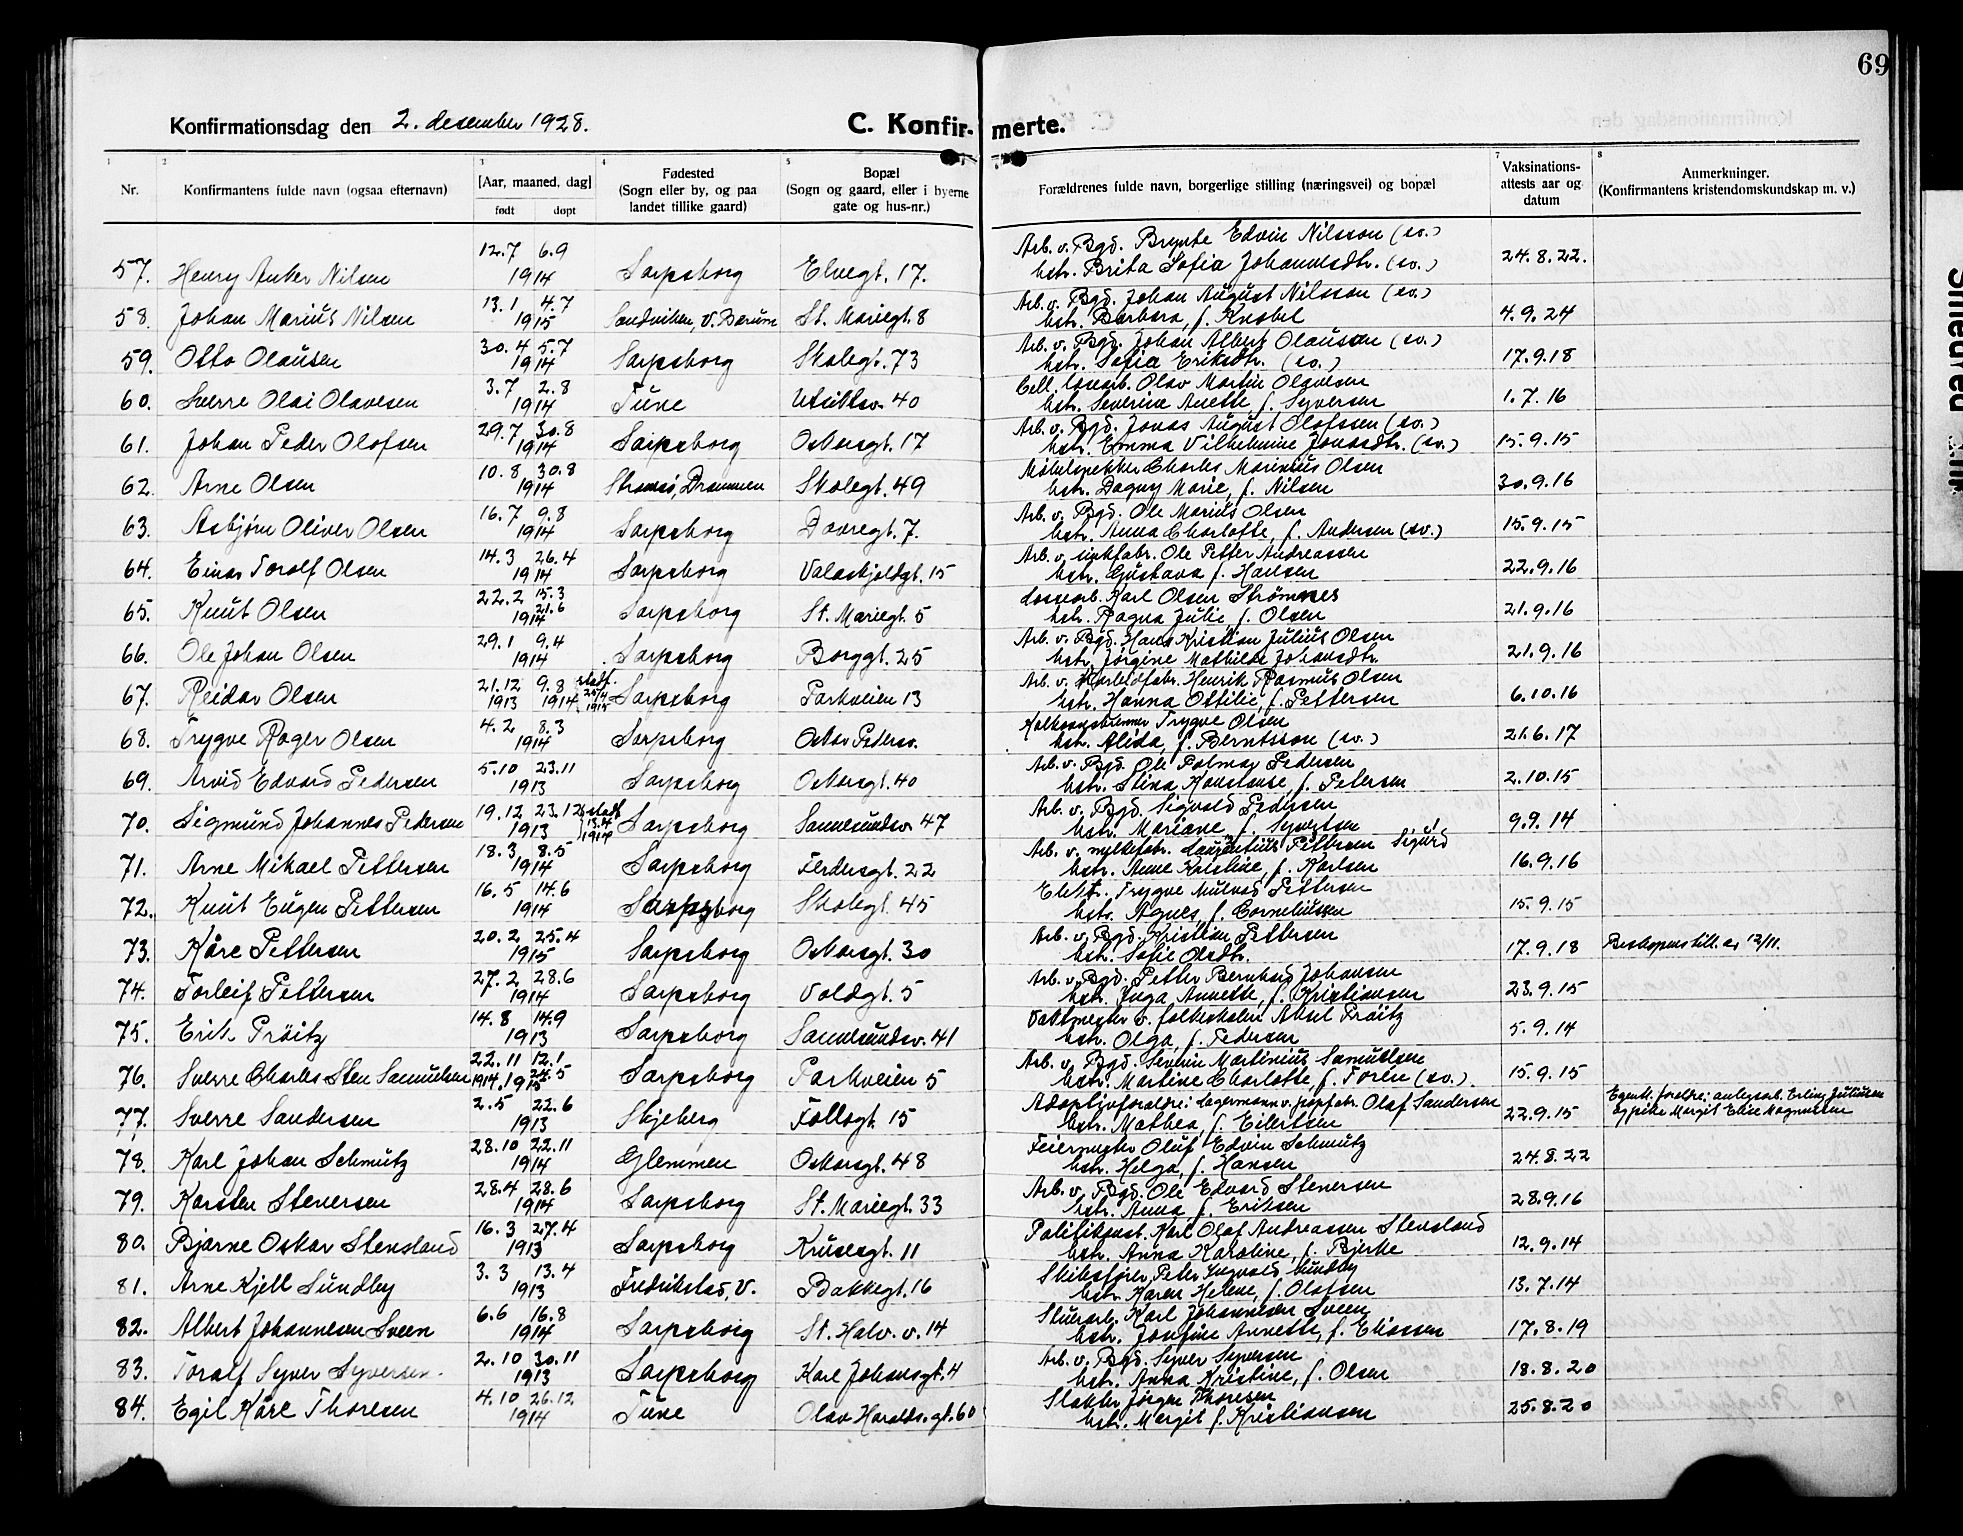 69
Konfirmationsdag den 2. desember 1928.
C. Konfir- merte.
1 2 3 4 5 7 8
Nr.
Konfirmantens fulde navn (ogsaa efternavn)
[Aar, maaned, dag]
født døpt
Fødested
(Sogn eller by, og paa
landet tillike gaard)
Bopæl
(Sogn og gaard, eller i byerne
gate og hus-nr.)
Forældrenes fulde navn, borgerlige stilling (næringsvei) og bopæl
Vaksinations-
attests aar og
datum
Anmerkninger.
(Konfirmantens kristendomskundskap m. v.)
12.7 6.9 Arb. v. Bgd. Brynte Edvin Nilsson (sv.)
57. Henry Anker Nilsen 1914 Sarpsborg Elvegt. 17. hstr. Brita Sofia Johannesdtr. (sv.) 24.8.22.
13.1 4.7 Arb. v. Bgd. Johan August Nilsson (sv.)
58. Johan Marius Nilsen 1915 Sandviken, V. Bærum St. Mariegt. 8 hstr. Barbara, f. Knobel 4.9.24
30.4 5.7 Arb. v. Bgd. Johan Albert Olausson (sv.)
59. Otto Olausen 1914 Sarpsborg Skolegt. 73 hstr. Sofia Eriksdtr. (sv.) 17.9.18
3.7 2.8 Cell. lossearb. Olav Martin Olavesen
60. Sverre Olai Olavesen 1914 Tune 40 hstr. Severine Anette f. Syversen 1.7.16
29.7 30.8 Arb. v. Bgd. Jonas August Olofsson (sv.)
61. Johan Peder Olofsen 1914 Sarpsborg Oskarsgt. 17 hstr. Emma Vilhelmine Jonasdtr. (sv.) 15.9.15
10.8 30.8 Møbelsnekker Charles Marinius Olsen
62. Arne Olsen 1914 Strømsø, Drammen Skolegt. 49 hstr. Dagny Marie, f. Nilsen 30.9.16
16.7 9.8 Arb. v. Bgd. Ole Marius Olsen
63. Asbjørn Oliver Olsen 1914 Sarpsborg Dovregt. 7. hstr. Anna Charlotte, f. Andersen (sv.) 15.9.15
14.3 26.4 Arb. v. sinkfabr. Ole Petter Andreassen
64. Einar Toralf Olsen 1914 Sarpsborg Valaskjoldgt. 15 hstr. Gustava f. Hansen 22.9.16
22.2 15.3 21.6 Lossearb. Karl Olsen Strømnes
65. Knut Olsen 1914 Sarpsborg St. Mariegt. 5 hstr. Ragna Julie, f. Olsen 21.9.16
29.1 9.4 Arb. v. Bgd. Hans Kristian Julius Olsen
66. Ole Johan Olsen 1914 Sarpsborg Borggt. 25 hstr. Jørgine Mathilde Johansdtr. 21.9.16
21.12 9.8 stadf. Arb. v. Karbidfabr. Henrik Rasmus Olsen
67. Reidar Olsen 1913 1914 1915 Sarpsborg Parkveien 13 hstr. Hanna Ottilie, f. Pettersen 6.10.16
4.2 8.3 Kalkovnsbrenner Trygve Olsen
68. Trygve Roger Olsen 1914 Sarpsborg Oskar Pedersv. hstr. Alida, f. Berntsson (sv.) 21.6.17
5.10 23.11 Arb. v. Bgd. Ole Palmar Pedersen
69. Arvid Edvard Pedersen 1913 Sarpsborg Oskarsgt. 40 hstr. Stina Konstanse, f. Petersen 2.10.15
19.12 23.12 stadf. 13.4 1914 Arb. v. Bgd. Sigvald Pedersen
70. Sigmund Johannes Pedersen 1913 Sarpsborg Sannesundsv. 47 hstr. Mariane, f. Syvertsen 9.9.14
18.3 8.5 Arb. v. melkefabr. Laurentius Pettersen Sigurd
71. Arne Mikael Pettersen 1914 Sarpsborg Flerdersgt. 22 hstr. Anne Kristine, f. Karlsen 16.9.16
16.5 14.6 Elektr. Trygve Mulvad Pettersen
72. Knut Eugen Pettersen 1914 Sarpsborg Skolegt. 45 hstr. Agnes, f. Corneliussen 15.9.15
20.2 25.4 Arb. v. Bgd. Kristian Pettersen
73. Kåre Pettersen 1915 Sarpsborg Oskarsgt. 30 hstr. Sofie Olsdtr. 17.9.18 Biskopens till. av 12/11.
27.2 28.6 Arb. v. Bgd. Petter Bernhard Johansen
74. Torleif Pettersen 1914 Sarpsborg Voldgt. 5 hstr. Inga Annette, f. Kristiansen 23.9.15
14.8 14.9 Vaktmester v. folkeskolen Aksel Prøitz
75. Erik Prøitz 1913 Sarpsborg Sannesundsv. 41 hstr. Olga, f. Pedersen 5.9.14
22.11 12.1 24.5 Arb. v. Bgd. Severin Martinius Samuelsen
76. Sverre Charles Sten Samuelsen 1914. 1915 Sarpsborg Parkveien 5 hstr. Martine Charlotte, f. Toren (sv.). 15.9.15
2.5 22.6 Adoptivforældre: lagermann v. papfabr. Olaf Sandersen Egentl. foreldre: anlegsarb. Erling Juliussen
77. Sverre Sandersen 1913 Skjeberg Follogt. 15 hstr. Mathea, f. Eilertsen 22.9.15 og pike Margit Elise Magnussen
28.10 22.11 Feiermester Oluf Edvin Schmutz
78. Karl Johan Schmutz 1914 Glemmen Oskarsgt. 48 hstr. Helga, f. Hansen 24.8.22
28.4 28.6 Arb. v. Bgd. Ole Edvard Stenersen
79. Karsten Stenersen 1914 Sarpsborg St. Mariegt. 33 hstr. Anna f. Eriksen 28.9.16
16.3 27.4 Politikonst. Karl Olaf Andreassen Stensland
80. Bjarne Oskar Stensland 1913 Sarpsborg Krusesgt. 11 hstr. Anna Karoline, f. Bjerke 12.9.14
3.3 13.4 Skibsfører Peter Ingvald Sundby
81. Arne Kjell Sundby 1913 Fredrikstad, V. Bakkegt. 16 hstr. Karen Helene, f. Olafsen 13.7.14
6.6 16.8 Stuerarb. Karl Johannesen Sveen
82. Albert Johannesen Sveen 1914 Sarpsborg St. Halv. v. 14 hstr. Josefine Annette, f. Eliassen 17.8.19
2.10 30.11 Arb. v. Bgd. Syver Syversen
83. Toralf Syver Syversen. 1913 Sarpsborg Karl Johansgt. 4 hstr. Anna Kristine, f. Olsen 18.8.20
4.10 26.12 Slakter Jørgen Thoresen
84. Egil Kåre Thoresen 1914 Tune Olav Haralds. gt. 60 hstr. Margit f. Kristiansen 25.8.20